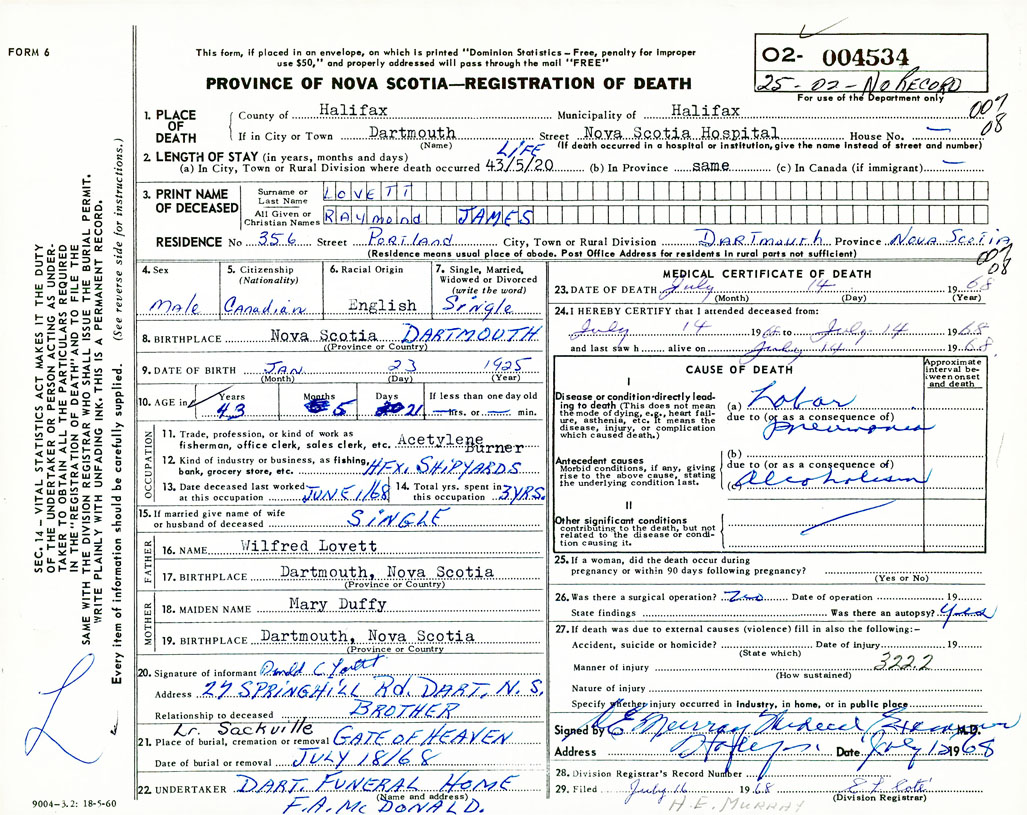 FORM 6
This form, if placed in an envelope, on which is printed "Dominion Statistics – Free, penalty for improper
use $50," and properly addressed will pass through the mail "FREE"
PROVINCE OF NOVA SCOTIA—REGISTRATION OF DEATH
02- 004534
25-02-No RECORD
For use of the Department only
007
08
1. PLACE OF DEATH
County of Halifax Municipality of Halifax
If in City or Town Dartmouth Street Nova Scotia Hospital House No. —
(Name) (If death occurred in a hospital or institution, give the name instead of street and number)
2. LENGTH OF STAY (in years, months and days) LIFE
(a) In City, Town or Rural Division where death occurred 43/5/20 (b) In Province same (c) In Canada (if immigrant) —
3. PRINT NAME OF DECEASED
Surname or Last Name LOVETT
All Given or Christian Names RAymond JAMES
RESIDENCE No 356 Street PORTLAND City, Town or Rural Division DARTMOUTH Province NOVA SCOTIA
(Residence means usual place of abode. Post Office Address for residents in rural parts not sufficient)
007
08
4. Sex
Male
5. Citizenship (Nationality)
Canadian
6. Racial Origin
English
7. Single, Married, Widowed or Divorced (write the word)
Single
8. BIRTHPLACE Nova Scotia DARTMOUTH
(Province or Country)
9. DATE OF BIRTH JAN 23 1925
(Month) (Day) (Year)
10. AGE in Years 43 Months 5 Days 21 If less than one day old — hrs. or — min.
OCCUPATION
11. Trade, profession, or kind of work as
fisherman, office clerk, sales clerk, etc. Acetylene Burner
12. Kind of industry or business, as fishing,
bank, grocery store, etc. HFX. SHIPYARDS
13. Date deceased last worked at this occupation JUNE 1/68
14. Total yrs. spent in this occupation 3 YRS.
15. If married give name of wife
or husband of deceased SINGLE
FATHER
16. NAME Wilfred Lovett
17. BIRTHPLACE Dartmouth, Nova Scotia
(Province or Country)
MOTHER
18. MAIDEN NAME Mary Duffy
19. BIRTHPLACE Dartmouth, Nova Scotia
(Province or Country
20. Signature of informant Donald C Lovett
Address 27 SPRINGHILL Rd. DART. N.S.
Relationship to deceased BROTHER
Lr. Sackville
21. Place of burial, cremation or removal GATE OF HEAVEN
Date of burial or removal JULY 18/68
22. UNDERTAKER DART. FUNERAL HOME
(Name and address)
F.A. McDONALD.
MEDICAL CERTIFICATE OF DEATH
23. DATE OF DEATH July 14 1968
(Month) (Day) (Year)
24. I HEREBY CERTIFY that I attended deceased from:
July 14 1968 to July 14 1968
and last saw h alive on July 14 1968
CAUSE OF DEATH
Approximate interval between onset and death
I
Disease or condition directly leading to death (This does not mean the mode of dying, e.g., heart failure, asthenia, etc. It means the disease, injury, or complication which caused death.)
(a) Lobar
due to (or as a consequence of)
pneumonia
Antecedent causes
Morbid conditions, if any, giving rise to the above cause, stating the underlying condition last.
(b)
due to (or as a consequence of)
(c) Alcoholism
II
Other significant conditions
contributing to the death, but not related to the disease or condition causing it.
25. If a woman, did the death occur during
pregnancy or within 90 days following pregnancy?
(Yes or No)
26. Was there a surgical operation? No Date of operation 19
State findings Was there an autopsy?
27. If death was due to external causes (violence) fill in also the following:–
Accident, suicide or homicide? Date of injury 19
(State which)
Manner of injury 3222
(How sustained)
Nature of injury
Specify whether injury occurred in industry, in home, or in public place
Signed by E Murray Medical Examiner M.D.
Address Halifax Date July 1968
28. Division Registrar's Record Number
29. Filed July 16 1968
(Division Registrar)
H.E. MURRAY
SEC. 14 – VITAL STATISTICS ACT MAKES IT THE DUTY
OF THE UNDERTAKER OR PERSON ACTING AS UNDER-
TAKER TO OBTAIN ALL THE PARTICULARS REQUIRED
IN THE "REGISTRATION OF DEATH" AND TO FILE THE
SAME WITH THE DIVISION REGISTRAR WHO SHALL ISSUE THE BURIAL PERMIT.
WRITE PLAINLY WITH UNFADING INK. THIS IS A PERMANENT RECORD.
Every item of information should be carefully supplied. (See reverse side for instructions.)
L
9004-3.2: 18-5-60